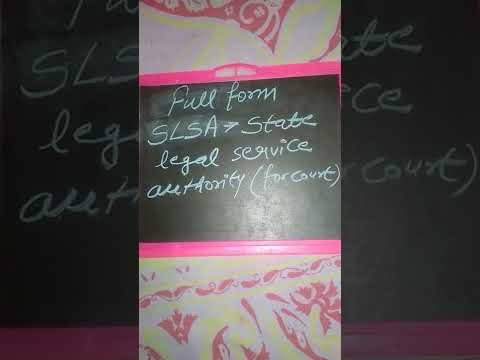 full form
SLSA → State
legal service
authority (for court)